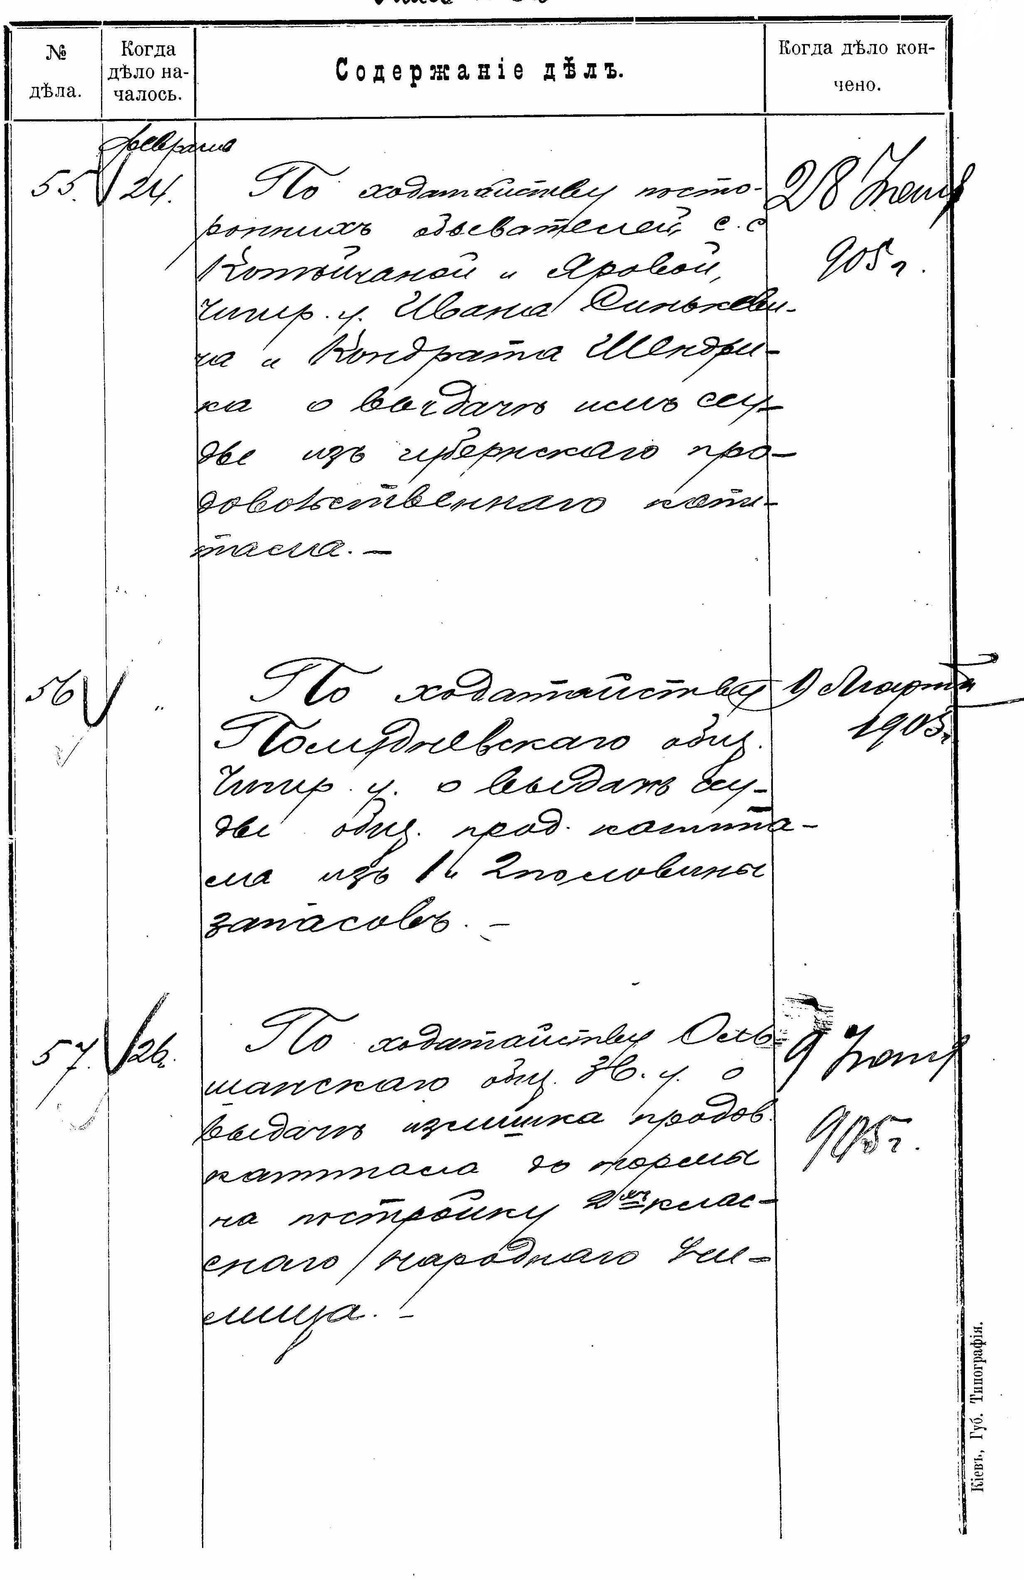 № дѣла.
Когда дѣло началось.
Содержаніе дѣлъ.
Когда дѣло кончено.
февраля
55. 24. По ходатайству посто-
роннихъ обывателей с.с
и Яровой,
Чигир. у. Ивана Синькеви-
ча и Кондрата Шендри-
ка о выдачѣ имъ ссу-
ды изъ губернскаго про-
довольственнаго капи-
тала. —
28
905 г.
56 " По ходатайству
Полудневскаго общ.
Чигир. у. о выдачѣ ссу-
ды общ. прод. капита-
ла изъ 1 и 2 половины
запасовъ. —
9 Марта
1905 г.
57. 26. По ходатайству Оль-
шанскаго общ. Зв. у. о
выдачѣ излишка продов.
капитала до нормы
на постройку 2хъ клас-
снаго народнаго учи-
лища. —
9
905 г.
Кіевъ, Губ. Типографія.